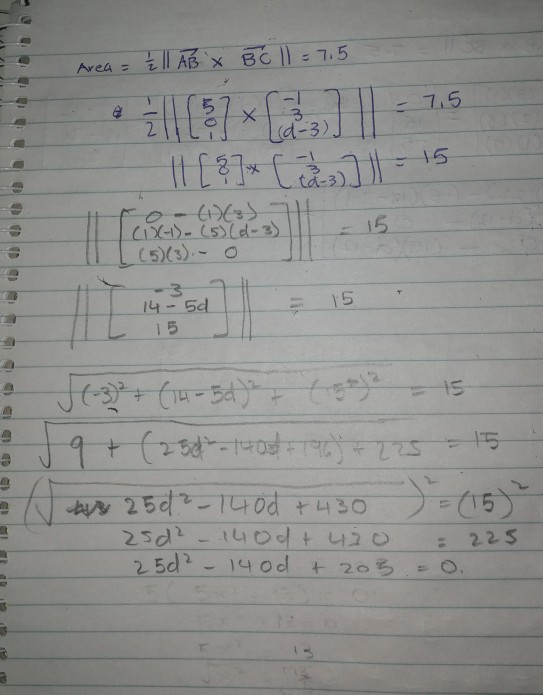 Area = 1/2 || AB⃗ × BC⃗ || = 7.5
1/2 || [5 0 1] × [-1 3 (d-3)] || = 7.5
|| [5 0 1] × [-1 3 (d-3)] || = 15
|| [0 - (1)(3) (1)(-1) - (5)(d-3) (5)(3) - 0] || = 15
|| [-3 14 - 5d 15] || = 15
√((-3)² + (14 - 5d)² + (15)²) = 15
√(9 + (25d² - 140d + 196) + 225) = 15
(√(25d² - 140d + 430))² = (15)²
25d² - 140d + 430 = 225
25d² - 140d + 205 = 0.